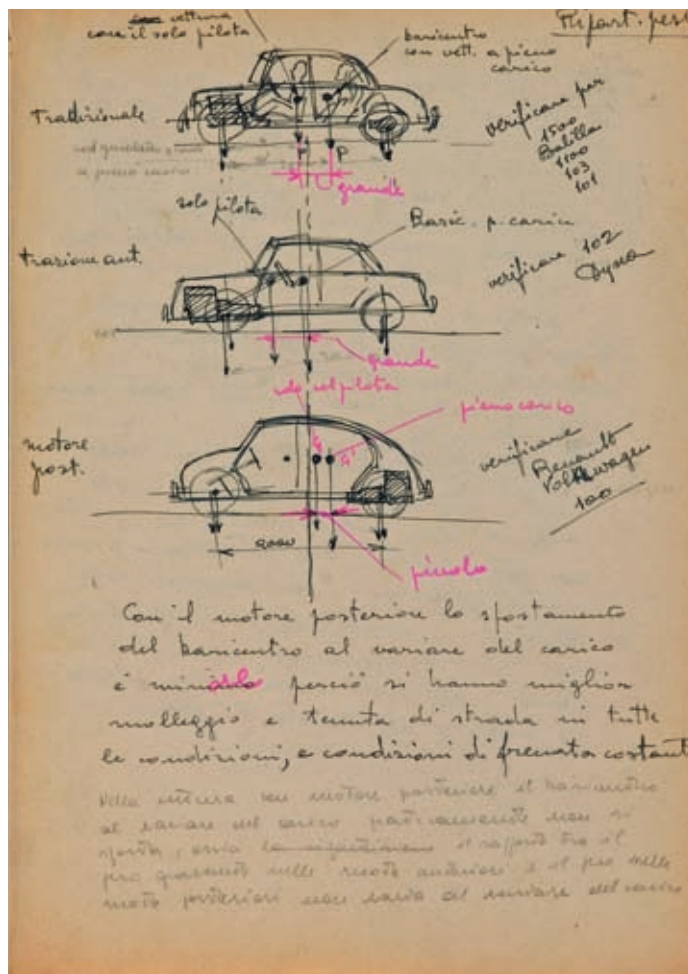 Ripart. pesi
vettura
con il solo pilota
baricentro
con vett. a pieno
carico
Tradizionale
a pieno carico
P P
grande
verificare per
1500
Balilla
1100
103
101
solo pilota
Baric. p. carico
trazione ant.
verificare 102
Dyna
grande
solo col pilota
pieno carico
motore
post.
G G'
verificare
Renault
Volkswagen
100
2000
piccolo
Con il motore posteriore lo spostamento
del baricentro al variare del carico
è perciò si hanno miglior
molleggio e tenuta di strada in tutte
le condizioni, e condizioni di frenata costanti
Nella vettura con motore posteriore il baricentro
al variare del carico praticamente non si
sposta, ossia il rapporto tra il
peso gravante sulle ruote anteriori e il peso sulle
ruote posteriori non varia al variare del carico